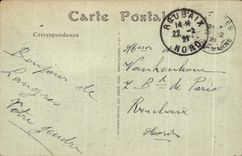 Carte Postale
Correspondance
ROUBAIX
14
22-2
21
NORD
Bonjour de
Langres
Votre gendre
Vankenhove
Bd de Paris
Roubaix
Nord